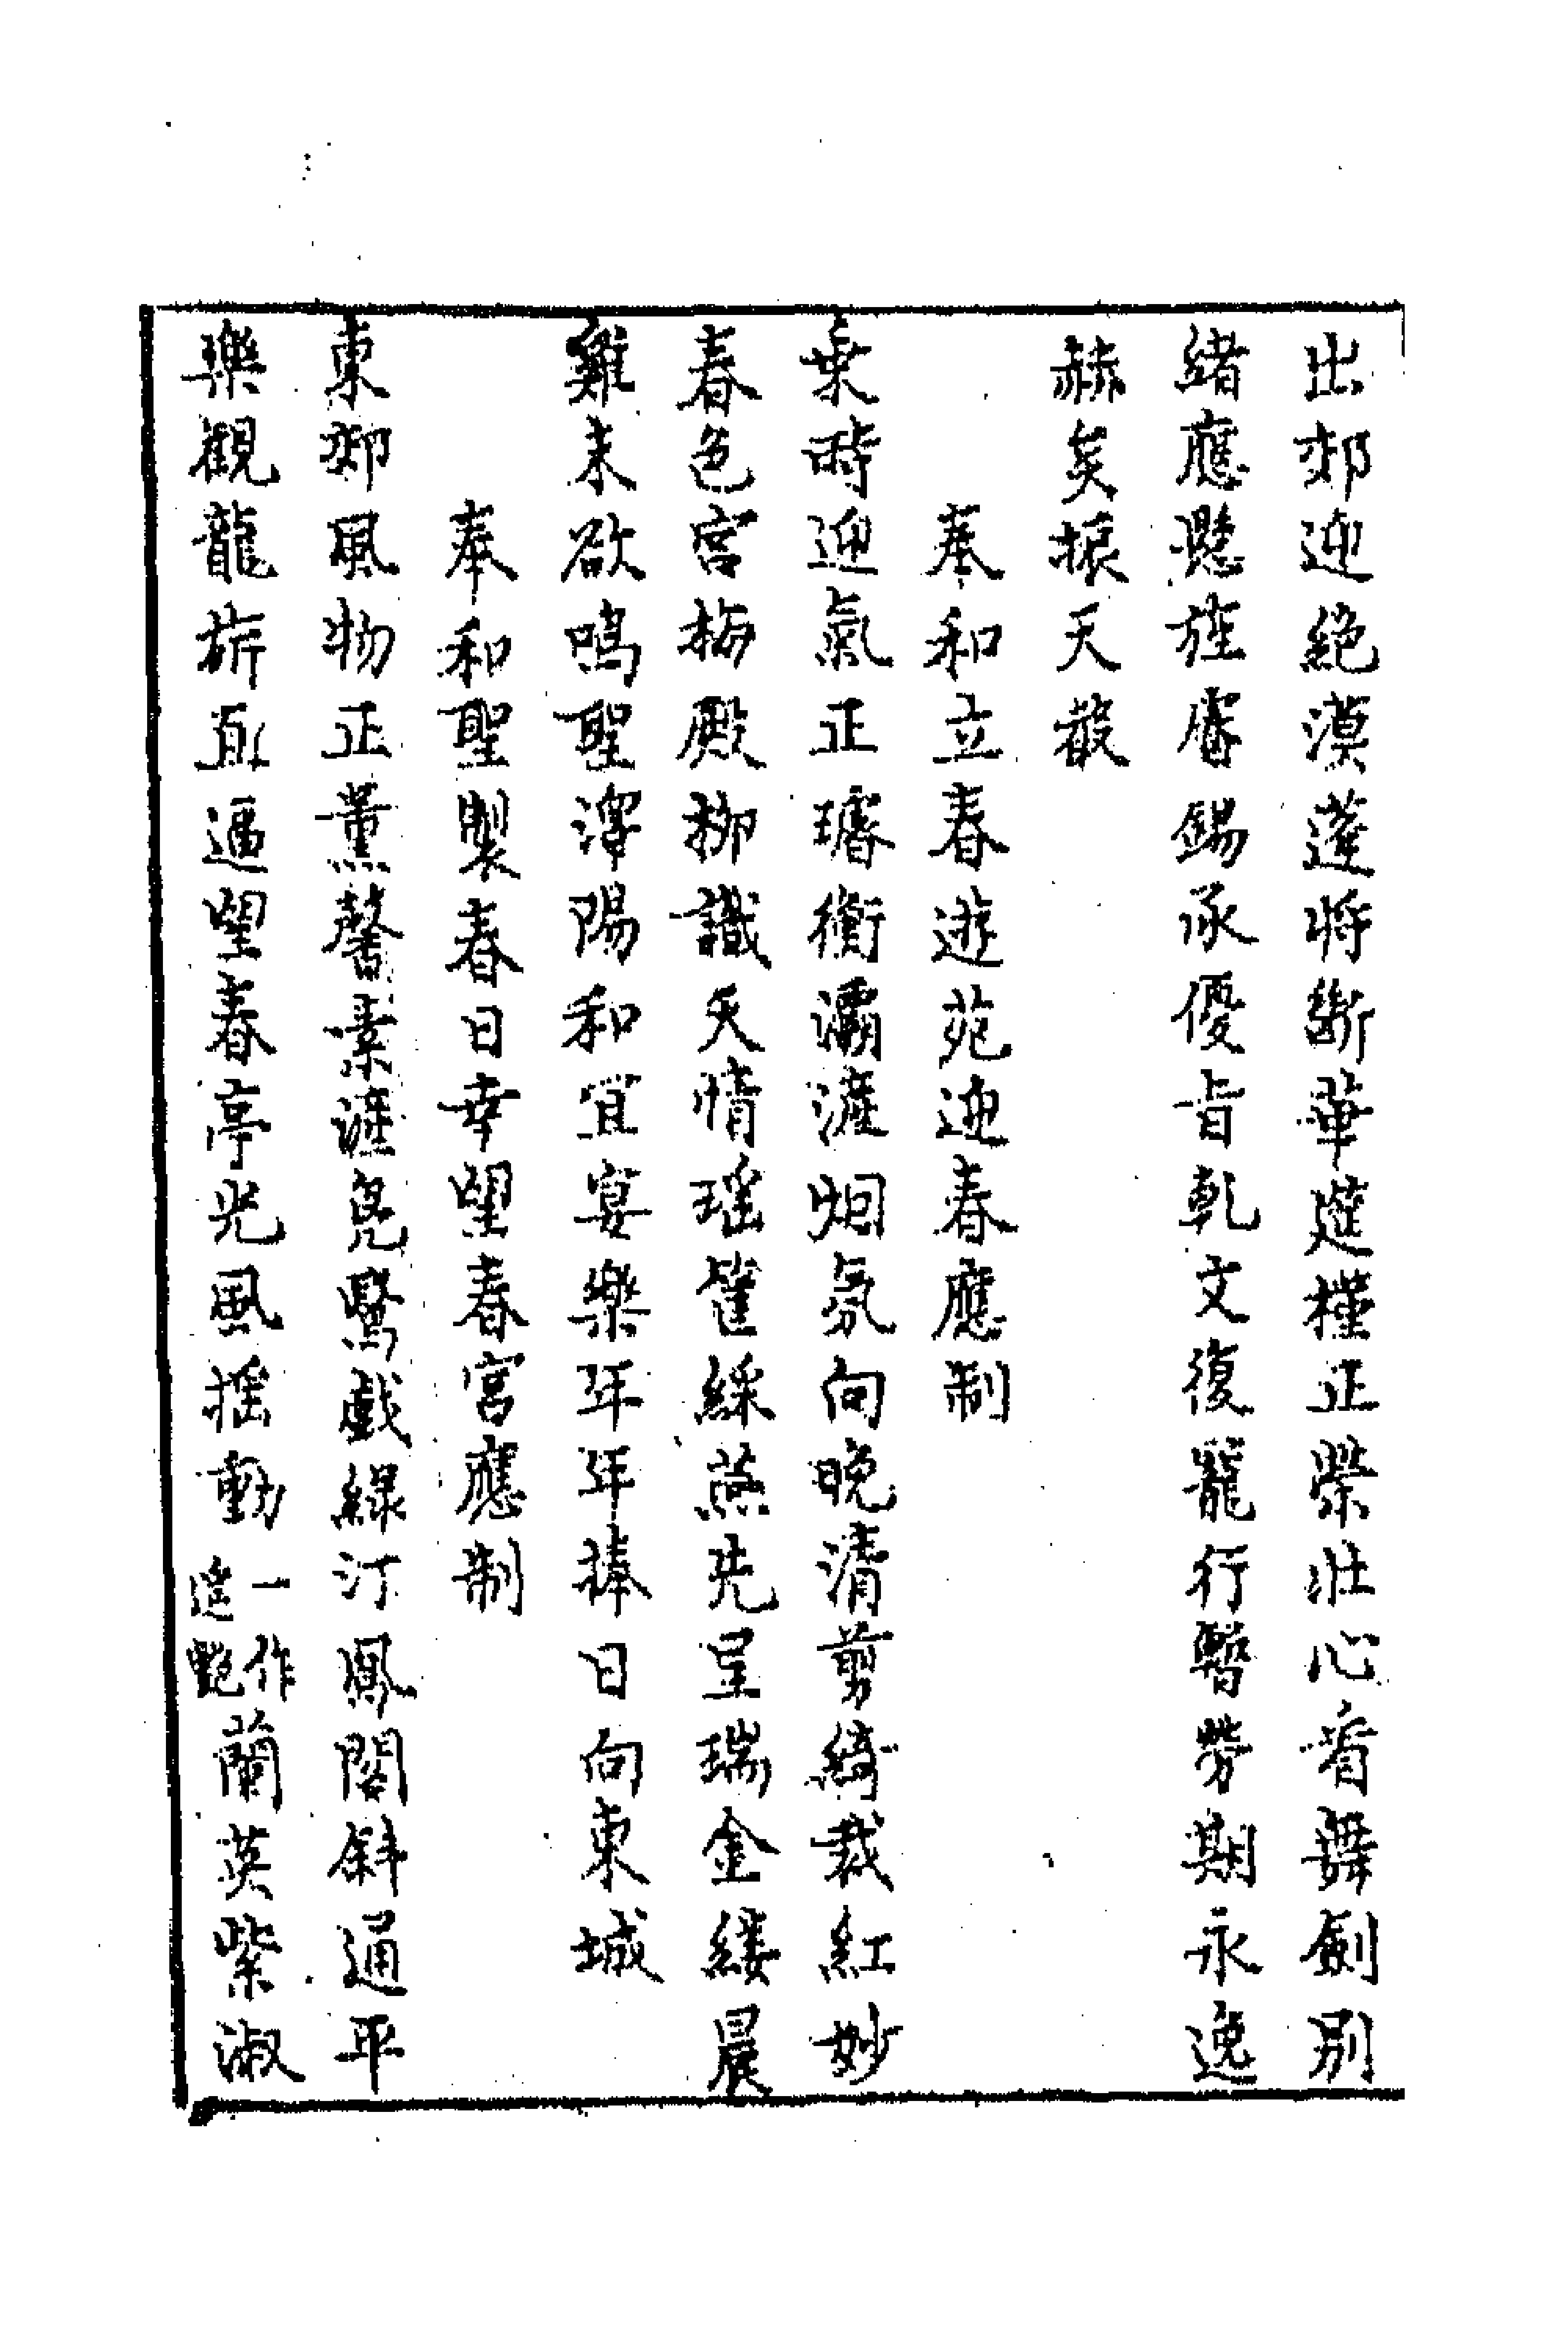 出郊迎絕漠蓬將斷華筵槿正榮壯心看舞劍別
緒應懸旌睿錫承優旨乾文復寵行暫勞期永逸
赫矣振天
奉和立春遊苑迎春應制
乗時迎氣正璿衡灞滻烟氛向晚清剪綺裁紅妙
春色宮梅殿柳識天情瑶筐綵燕先呈瑞金縷晨
雞未欲鳴聖澤陽和宜宴樂年年捧日向東城
奉和聖製春日幸望春宮應制
東郊風物正薰馨素滻鳧鷖戲綠汀鳳閣斜通平
樂觀龍旂直逼望春亭光風揺動一作遙艷蘭英紫淑